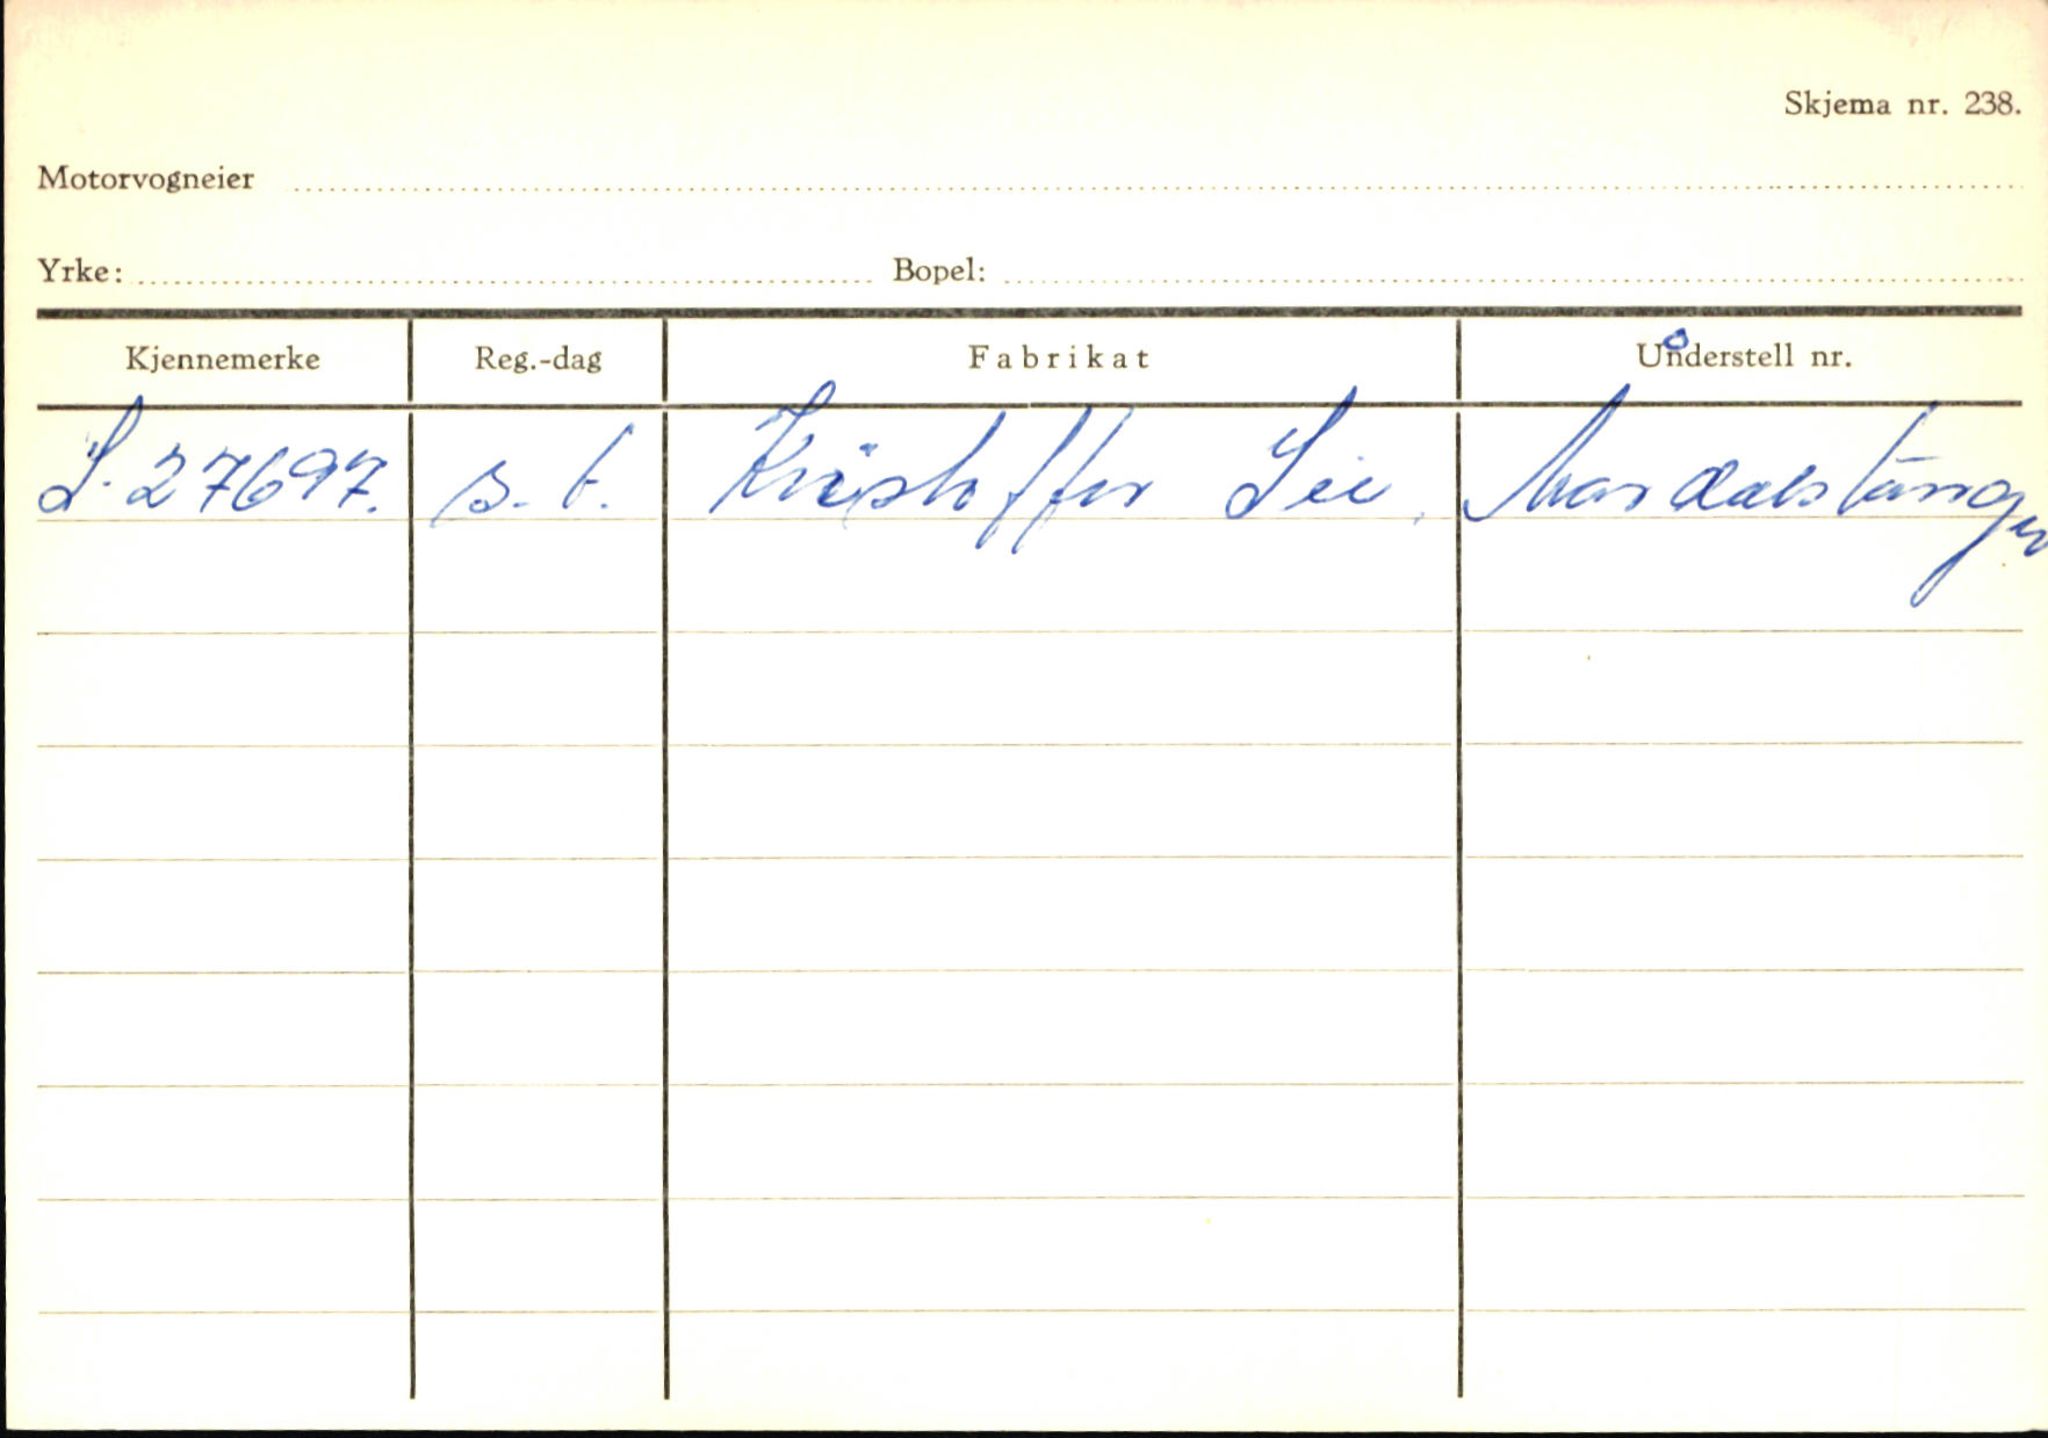 Skjema nr. 238.
Motorvogneier
Yrke: Bopel:
Kjennemerke Reg.-dag Fabrikat Understell nr.
S. 27697. s. t. Kristoffer Lie, Årdalstangen